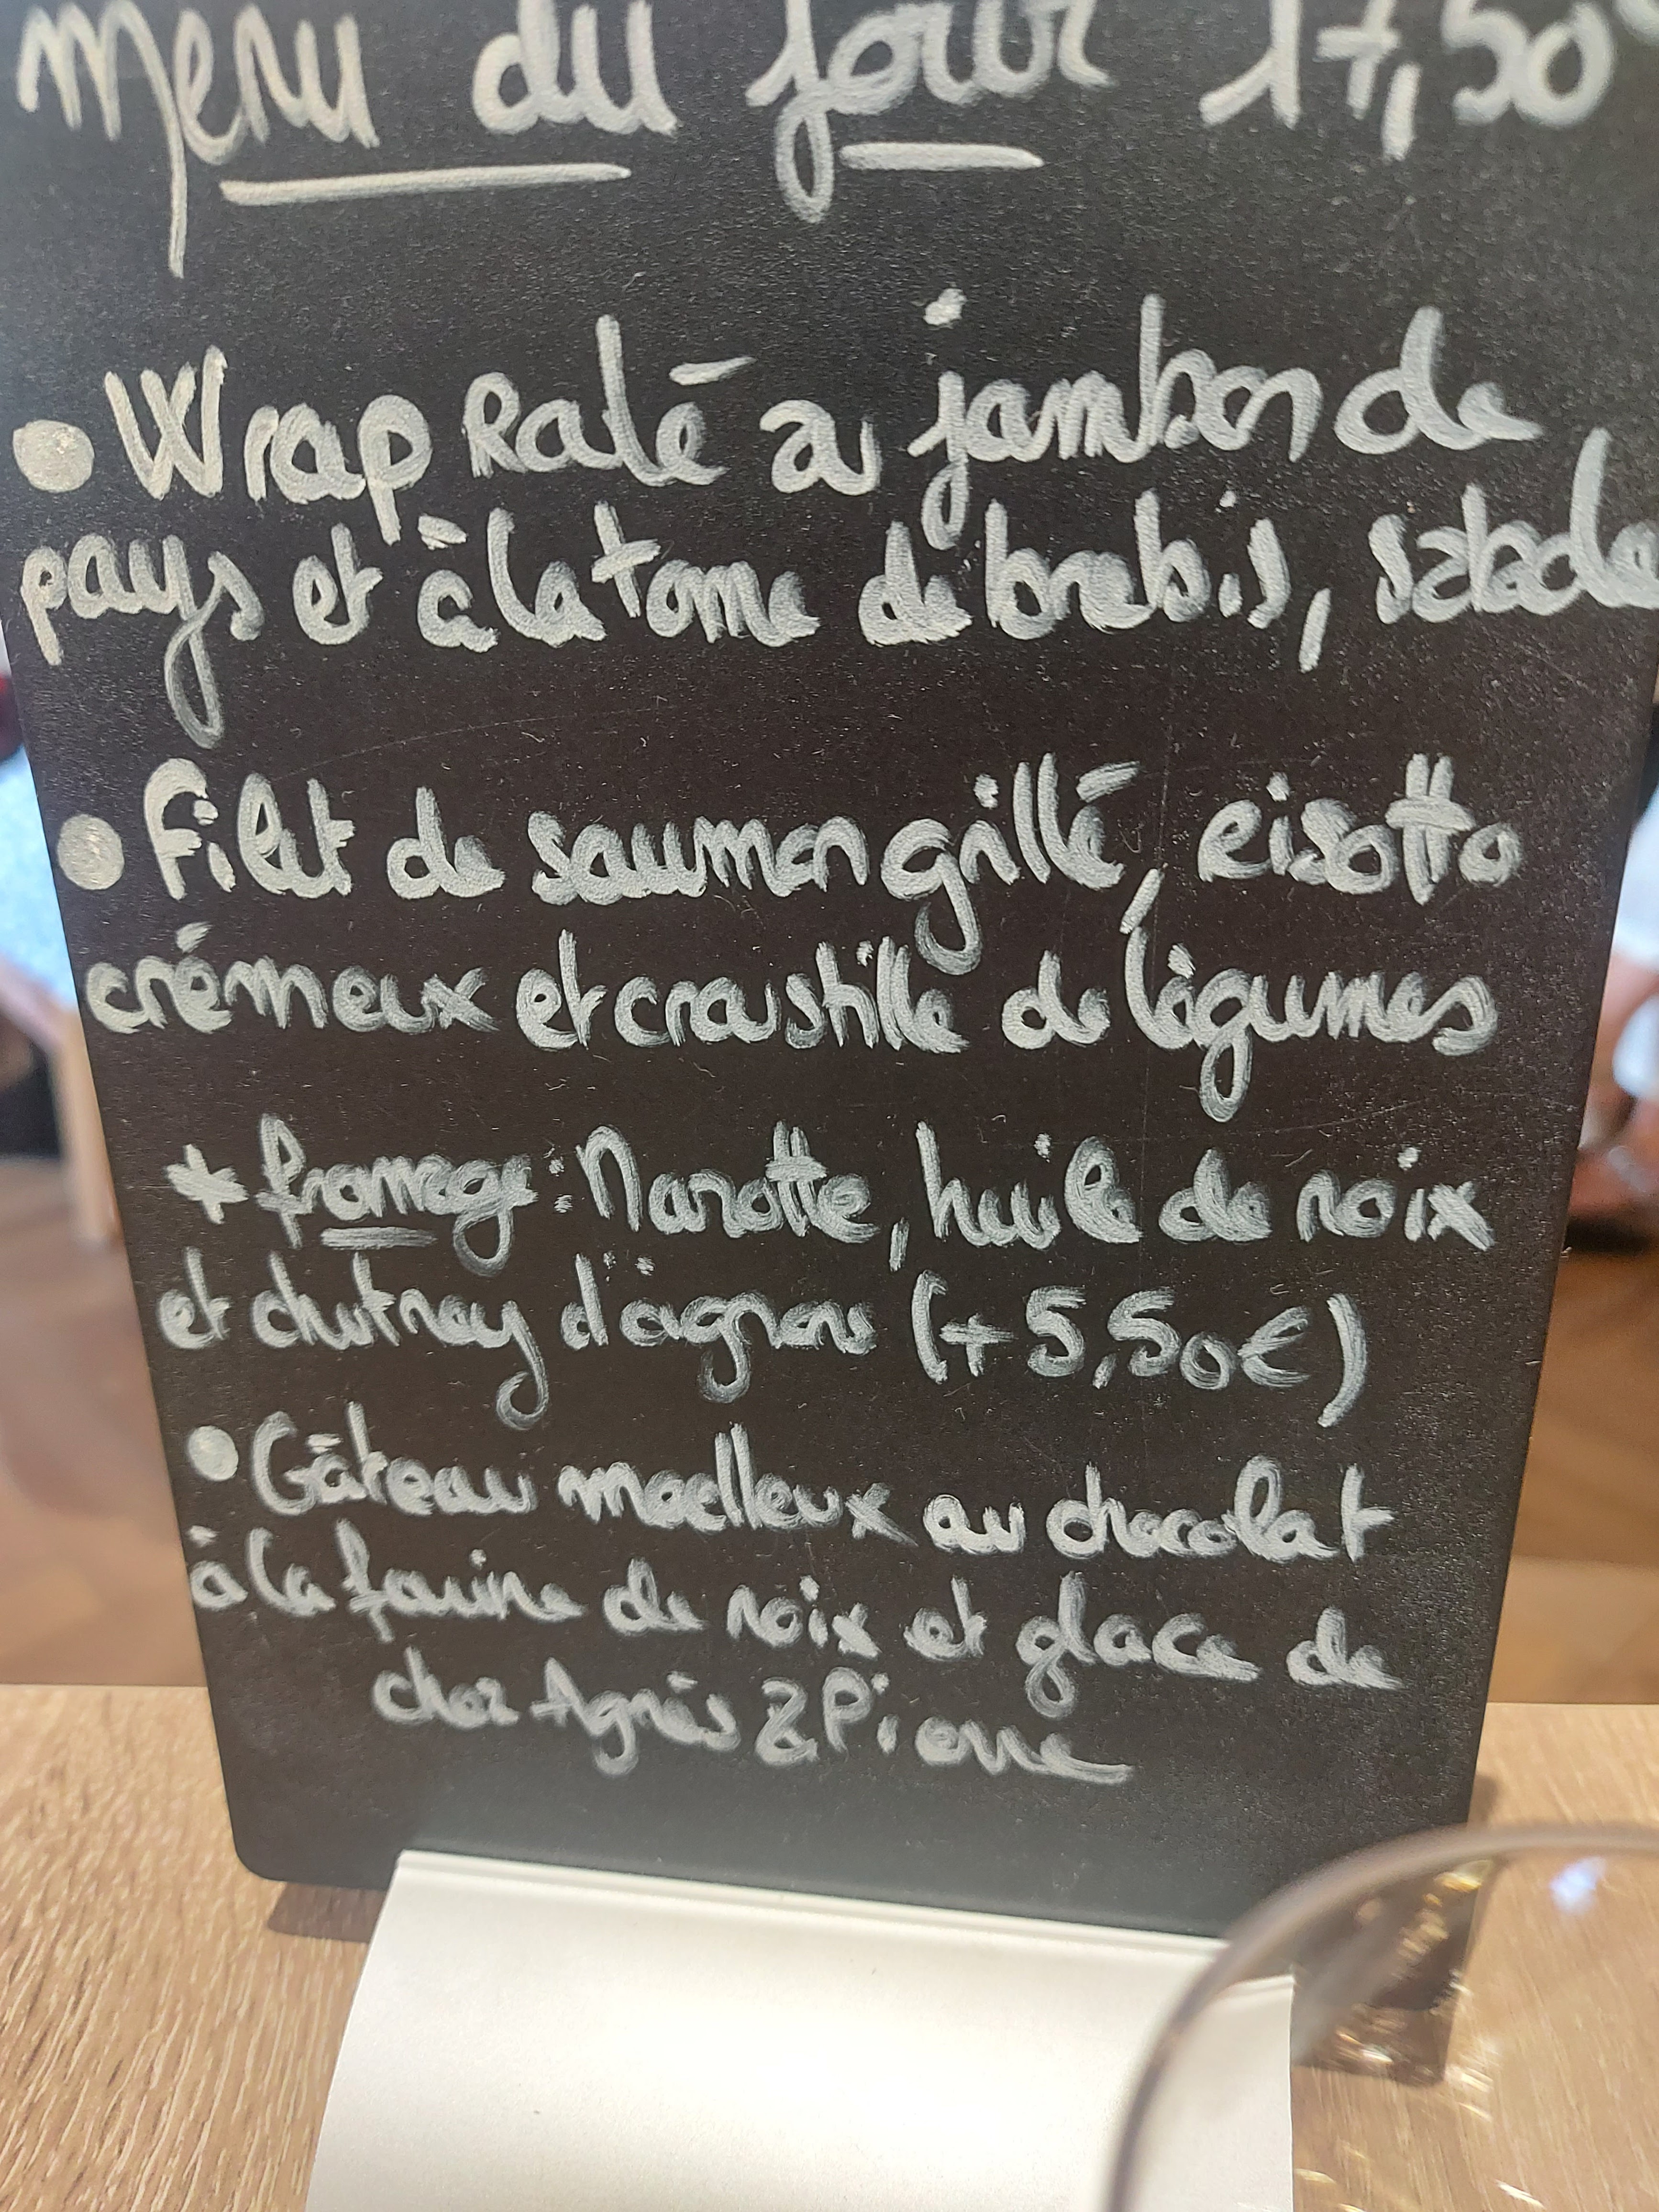 Menu du jour 17,50€
• Wrap Raté au jambon de
pays et à la tome de brebis, salade
• Filet de saumon grillé, risotto
crémeux et croustille de légumes
* fromage : Marotte, huile de noix
et chutney d'agnou (+5,50€)
• Gâteau moelleux au chocolat
à la farine de noix et glace de
chez Agnès & Pierre